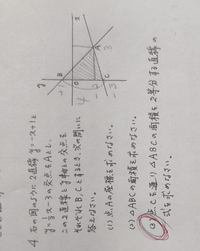 4 右の図のように2直線 y=-x+1と
y=½x-3の交点をAとし、
この2直線とy軸との交点を
それぞれB、Cとするとき、次の問いに
答えなさい。
(1) 点Aの座標を求めなさい。
(2) △ABCの面積を求めなさい。
(3) 点Cを通り△ABCの面積を2等分する直線の
式を求めなさい。
y
x
A
B
C
O